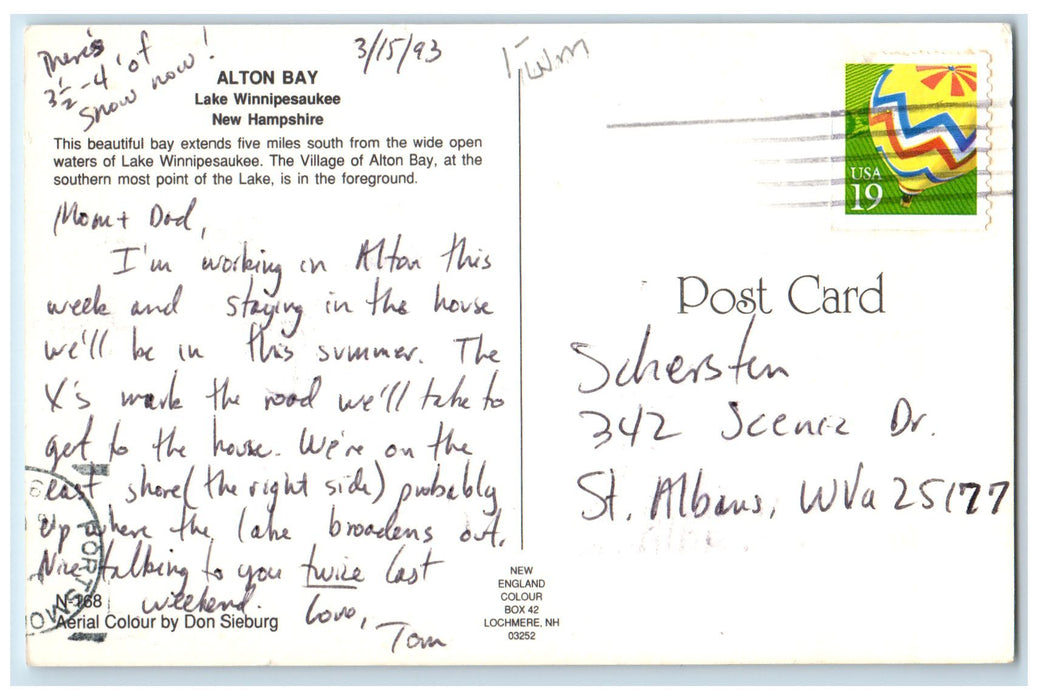 There's
3½-4' of
snow now!
3/15/93
ALTON BAY
Lake Winnipesaukee
New Hampshire
This beautiful bay extends five miles south from the wide open
waters of Lake Winnipesaukee. The Village of Alton Bay, at the
southern most point of the Lake, is in the foreground.
Mom + Dad,
I'm working in Alton this
week and staying in the house
we'll be in this summer. The
X's mark the road we'll take to
get to the house. We're on the
east shore (the right side) probably
up where the lake broadens out.
Nice talking to you twice last
weekend. Love,
Tom
N-168
Aerial Colour by Don Sieburg
NEW
ENGLAND
COLOUR
BOX 42
LOCHMERE, NH
03252
USA
19
Post Card
Schersten
342 Scenic Dr.
St. Albans, WVa 25177